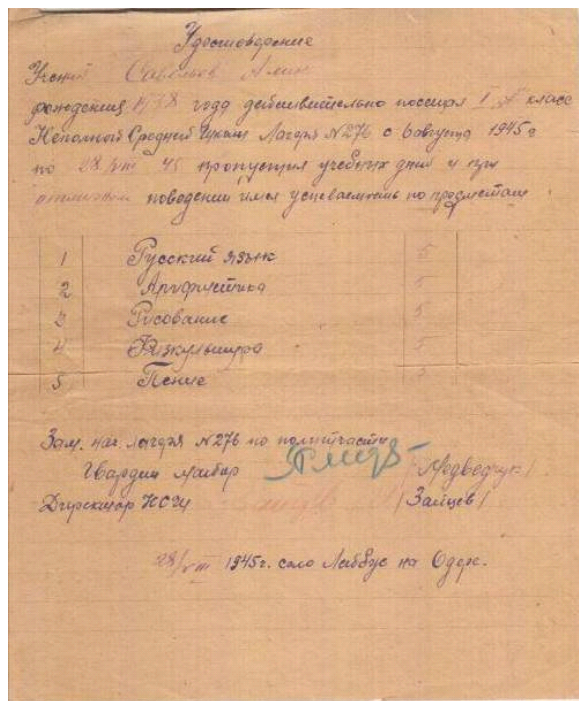 Удостоверение
Ученик Савельев
рождения 1938 года действительно посещал I класс
Неполной Средней Школы Лагеря №276 с 6 августа 1945 г
по 28/VIII 45 пропустил учебных дней и при
отличном поведении имел успеваемость по предметам
1 Русский язык 5
2 Арифметика 5
3 Рисование 5
4 Физкультура 5
5 Пение 5
Зам. нач. лагеря №276 по политчасти
Гвардии майор /Медведчук/
Директор НСШ /Зайцев/
28/VIII 1945 г. село Лаббус на Одере.